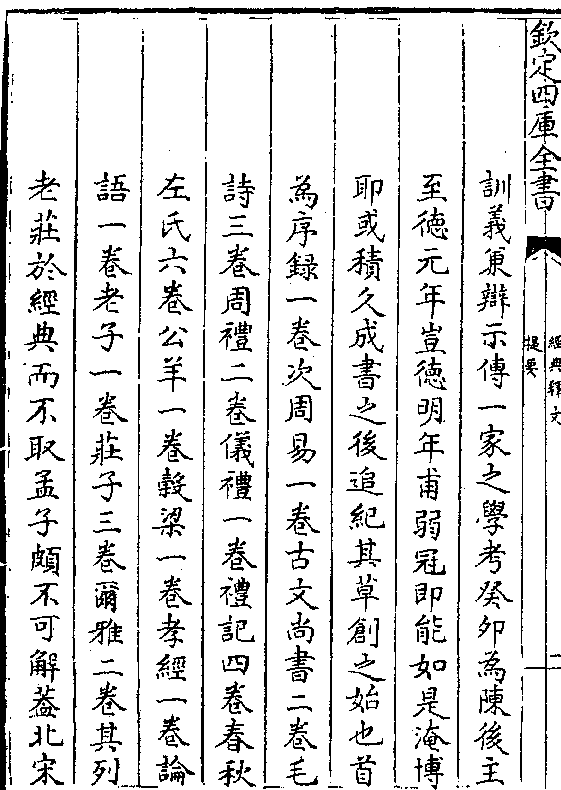 欽定四庫全書
經典釋文
提要
二
訓義兼辯示傳一家之學考癸卯為陳後主
至徳元年豈徳明年甫弱冠即能如是淹博
耶或積久成書之後追紀其草創之始也首
為序録一卷次周易一卷古文尚書二卷毛
詩三卷周禮二卷儀禮一卷禮記四卷春秋
左氏六卷公羊一卷穀梁一卷孝經一卷論
語一卷老子一卷莊子三卷爾雅二卷其列
老莊於經典而不取孟子頗不可解葢北宋